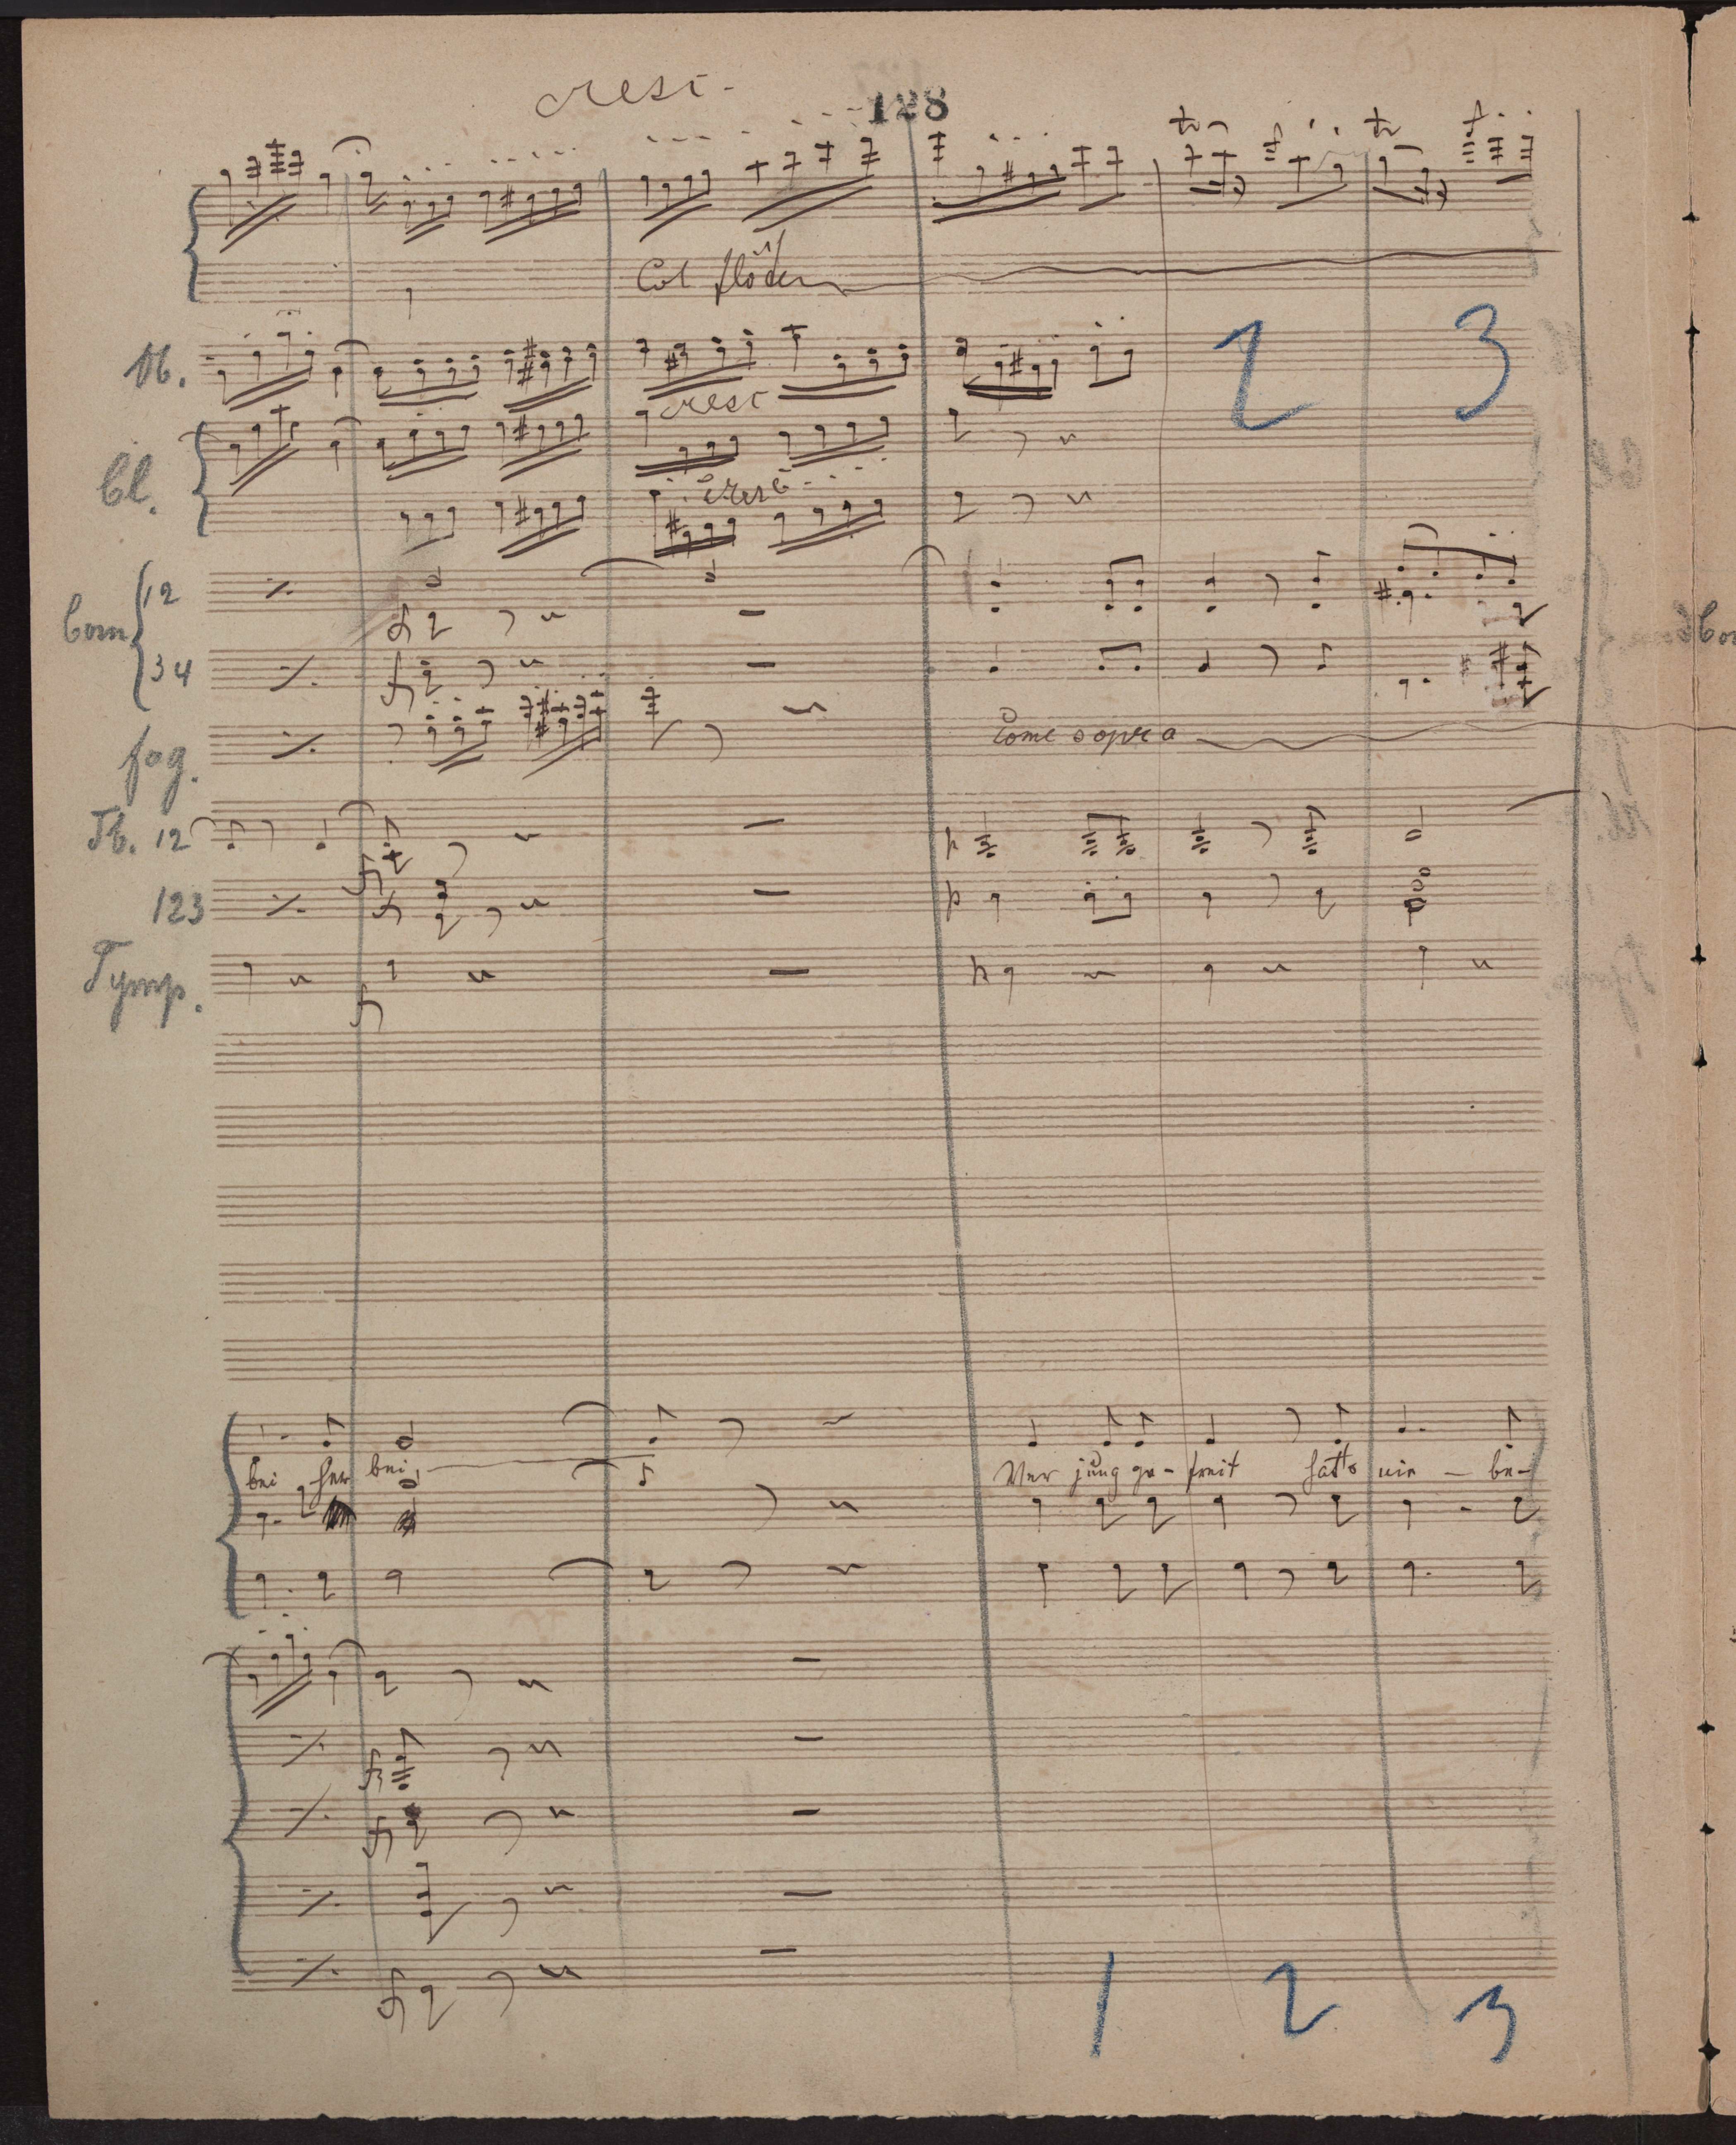 cresc.
128
Col flöten
Ob.
2 3
cresc
Cl.
cresc
Corn
12
34
fag.
Come sopra
Tb. 12
p
123
p
Tymp.
p
bei her bei Wer jung ge-freit hatts nie - be-
1 2 3